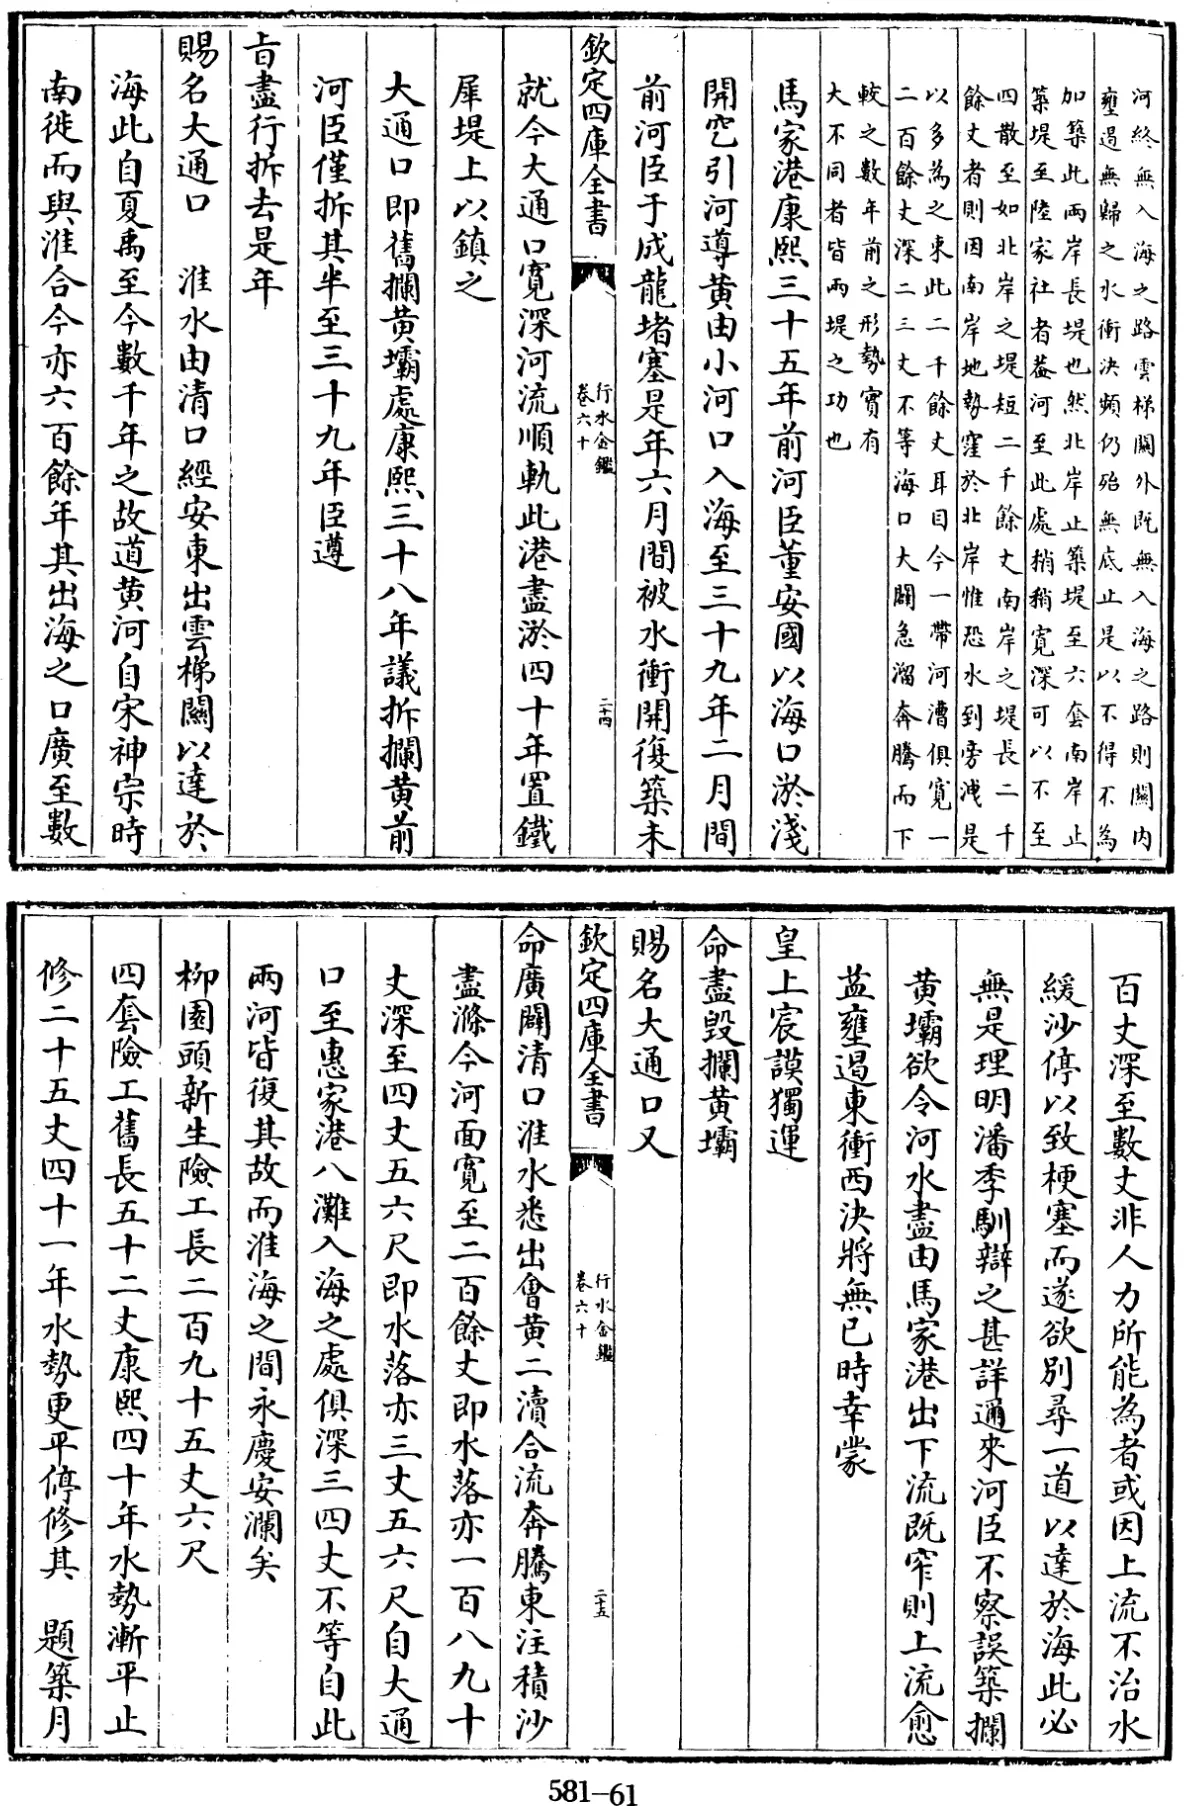 河終無入海之路雲梯關外既無入海之路則關内
壅遏無歸之水衝決頻仍殆無底止是以不得不為
加築此兩岸長堤也然北岸止築堤至六套南岸止
築堤至陸家社者葢河至此處稍稍寛深可以不至
四散至如北岸之堤短二千餘丈南岸之堤長二千
餘丈者則因南岸地勢窪於北岸惟恐水到旁洩是
以多為之東此二千餘丈耳目今一帶河漕俱寛一
二百餘丈深二三丈不等海口大闢急溜奔騰而下
較之數年前之形勢實有
大不同者皆兩堤之功也
馬家港康熙三十五年前河臣董安國以海口淤淺
開挖引河導黄由小河口入海至三十九年二月間
前河臣于成龍堵塞是年六月間被水衝開復築未
欽定四庫全書
行水金鑑
卷六十
二十四
就今大通口寛深河流順軌此港盡淤四十年置鐵
犀堤上以鎮之
大通口即舊攔黄壩處康熙三十八年議拆攔黄前
河臣僅拆其半至三十九年臣遵
㫖盡行拆去是年
賜名大通口 淮水由清口經安東出雲梯關以達於
海此自夏禹至今數千年之故道黄河自宋神宗時
南徙而與淮合今亦六百餘年其出海之口廣至數
百丈深至數丈非人力所能為者或因上流不治水
緩沙停以致梗塞而遂欲別尋一道以達於海此必
無是理明潘季馴辯之甚詳邇來河臣不察誤築攔
黄壩欲令河水盡由馬家港出下流既窄則上流愈
葢壅遏東衝西決將無已時幸蒙
皇上宸謨獨運
命盡毁攔黄壩
賜名大通口又
欽定四庫全書
行水金鑑
卷六十
二十五
命廣闢清口淮水悉出會黄二瀆合流奔騰東注積沙
盡滌今河面寛至二百餘丈即水落亦一百八九十
丈深至四丈五六尺即水落亦三丈五六尺自大通
口至惠家港八灘入海之處俱深三四丈不等自此
兩河皆復其故而淮海之間永慶安瀾矣
柳園頭新生險工長二百九十五丈六尺
四套險工舊長五十二丈康熙四十年水勢漸平止
修二十五丈四十一年水勢更平停修其 題築月
581-61